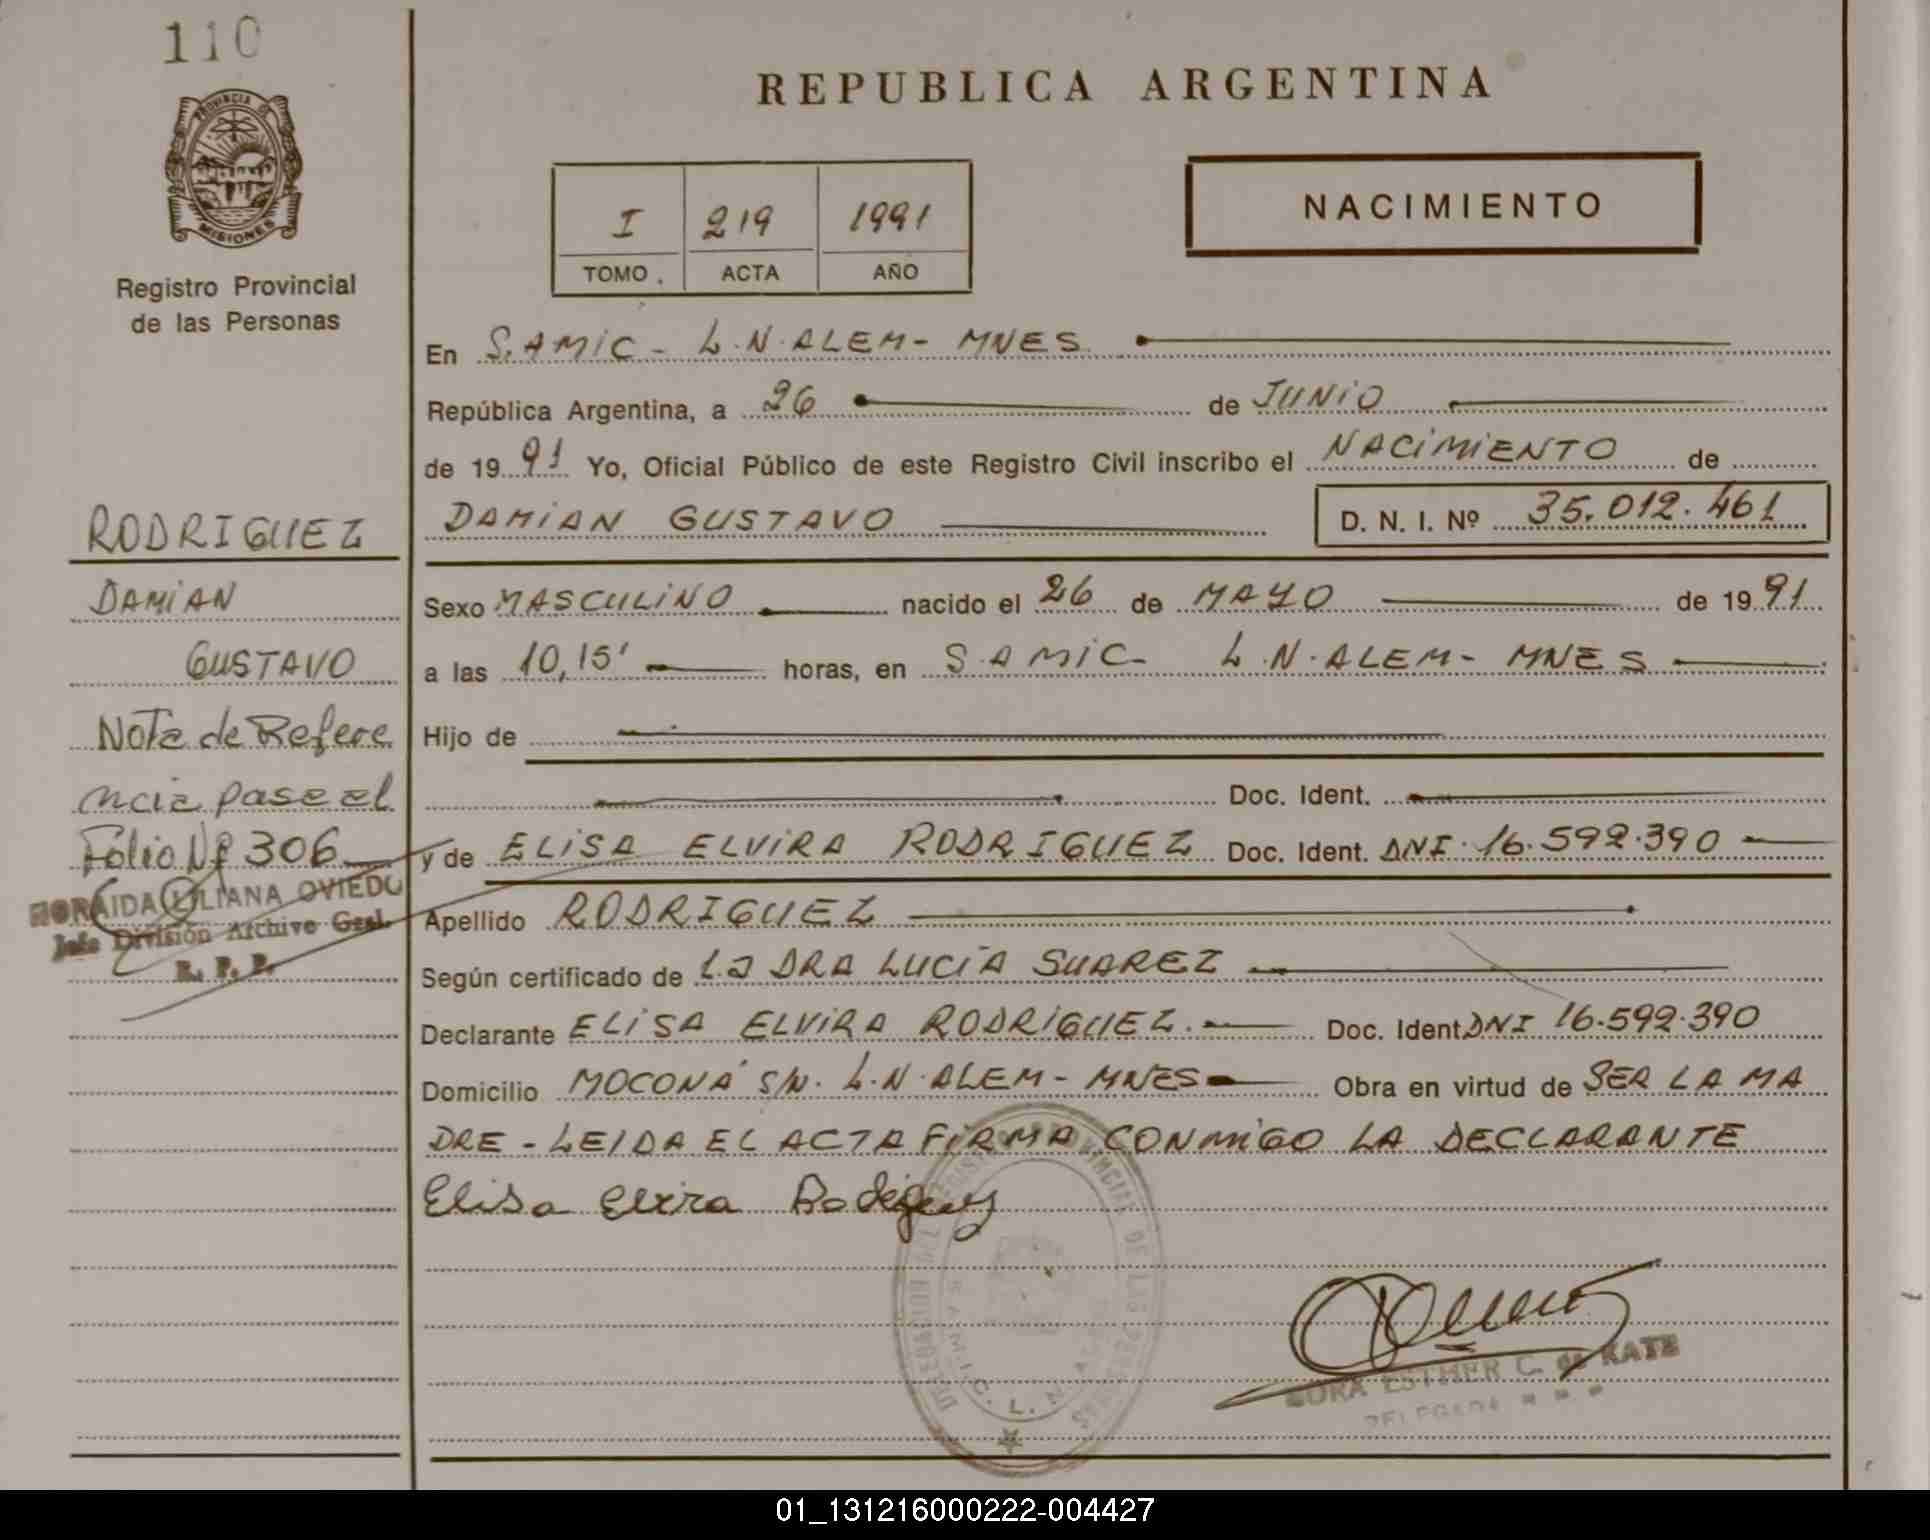 110
PROVINCIA DE
MISIONES
Registro Provincial
de las Personas
RODRIGUEZ
DAMIAN
GUSTAVO
Nota de Refere
ncia pase al
Folio Nº 306
LILIANA OVIEDO
Jefe División Archivo Gral.
R. P. P.
REPUBLICA ARGENTINA
I 219 1991
TOMO. ACTA AÑO
NACIMIENTO
En S.AMIC - L.N.ALEM - MNES
República Argentina, a 26 de JUNIO
de 1991 Yo, Oficial Público de este Registro Civil inscribo el NACIMIENTO de
DAMIAN GUSTAVO D. N. I. Nº 35.012.461
Sexo MASCULINO nacido el 26 de MAYO de 1991
a las 10,15' horas, en S.AMIC - L.N.ALEM - MNES
Hijo de
Doc. Ident.
y de ELISA ELVIRA RODRIGUEZ Doc. Ident. DNI. 16.592.390
Apellido RODRIGUEZ
Según certificado de La DRA LUCIA SUAREZ
Declarante ELISA ELVIRA RODRIGUEZ. Doc. Ident DNI 16.592.390
Domicilio MOCONÁ S/N. L.N.ALEM - MNES Obra en virtud de SER LA MA
DRE - LEIDA EL ACTA FIRMA CONMIGO LA DECLARANTE
Elisa Elvira Rodriguez
ESTHER C. de KATZ
DELEGADA
01_131216000222-004427